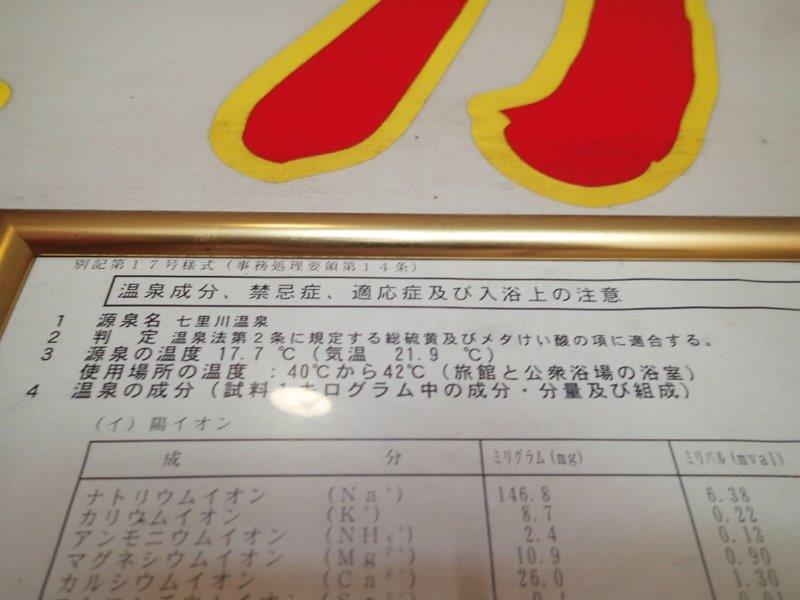 別記第17号様式(事務処理要領第14条)
温泉成分、禁忌症、適応症及び入浴上の注意
1 源泉名 七里川温泉
2 判定 温泉法第2条に規定する総硫黄及びメタけい酸の項に適合する。
3 源泉の温度 17.7℃(気温 21.9 ℃)
使用場所の温度 :40℃から42℃(旅館と公衆浴場の浴室)
4 温泉の成分(試料1キログラム中の成分・分量及び組成)
(イ)陽イオン
成 分 ミリグラム(mg) ミリバル(mval)
ナトリウムイオン (Na⁺) 146.8 6.38
カリウムイオン (K⁺) 8.7 0.22
アンモニウムイオン (NH₄⁺) 2.4 0.13
マグネシウムイオン (Mg²⁺) 10.9 0.90
カルシウムイオン (Ca²⁺) 26.0 1.30